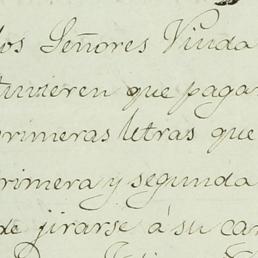 los Señores Viuda
tuvieren que paga
primeras letras que
primera y segunda
de jirarse á su car